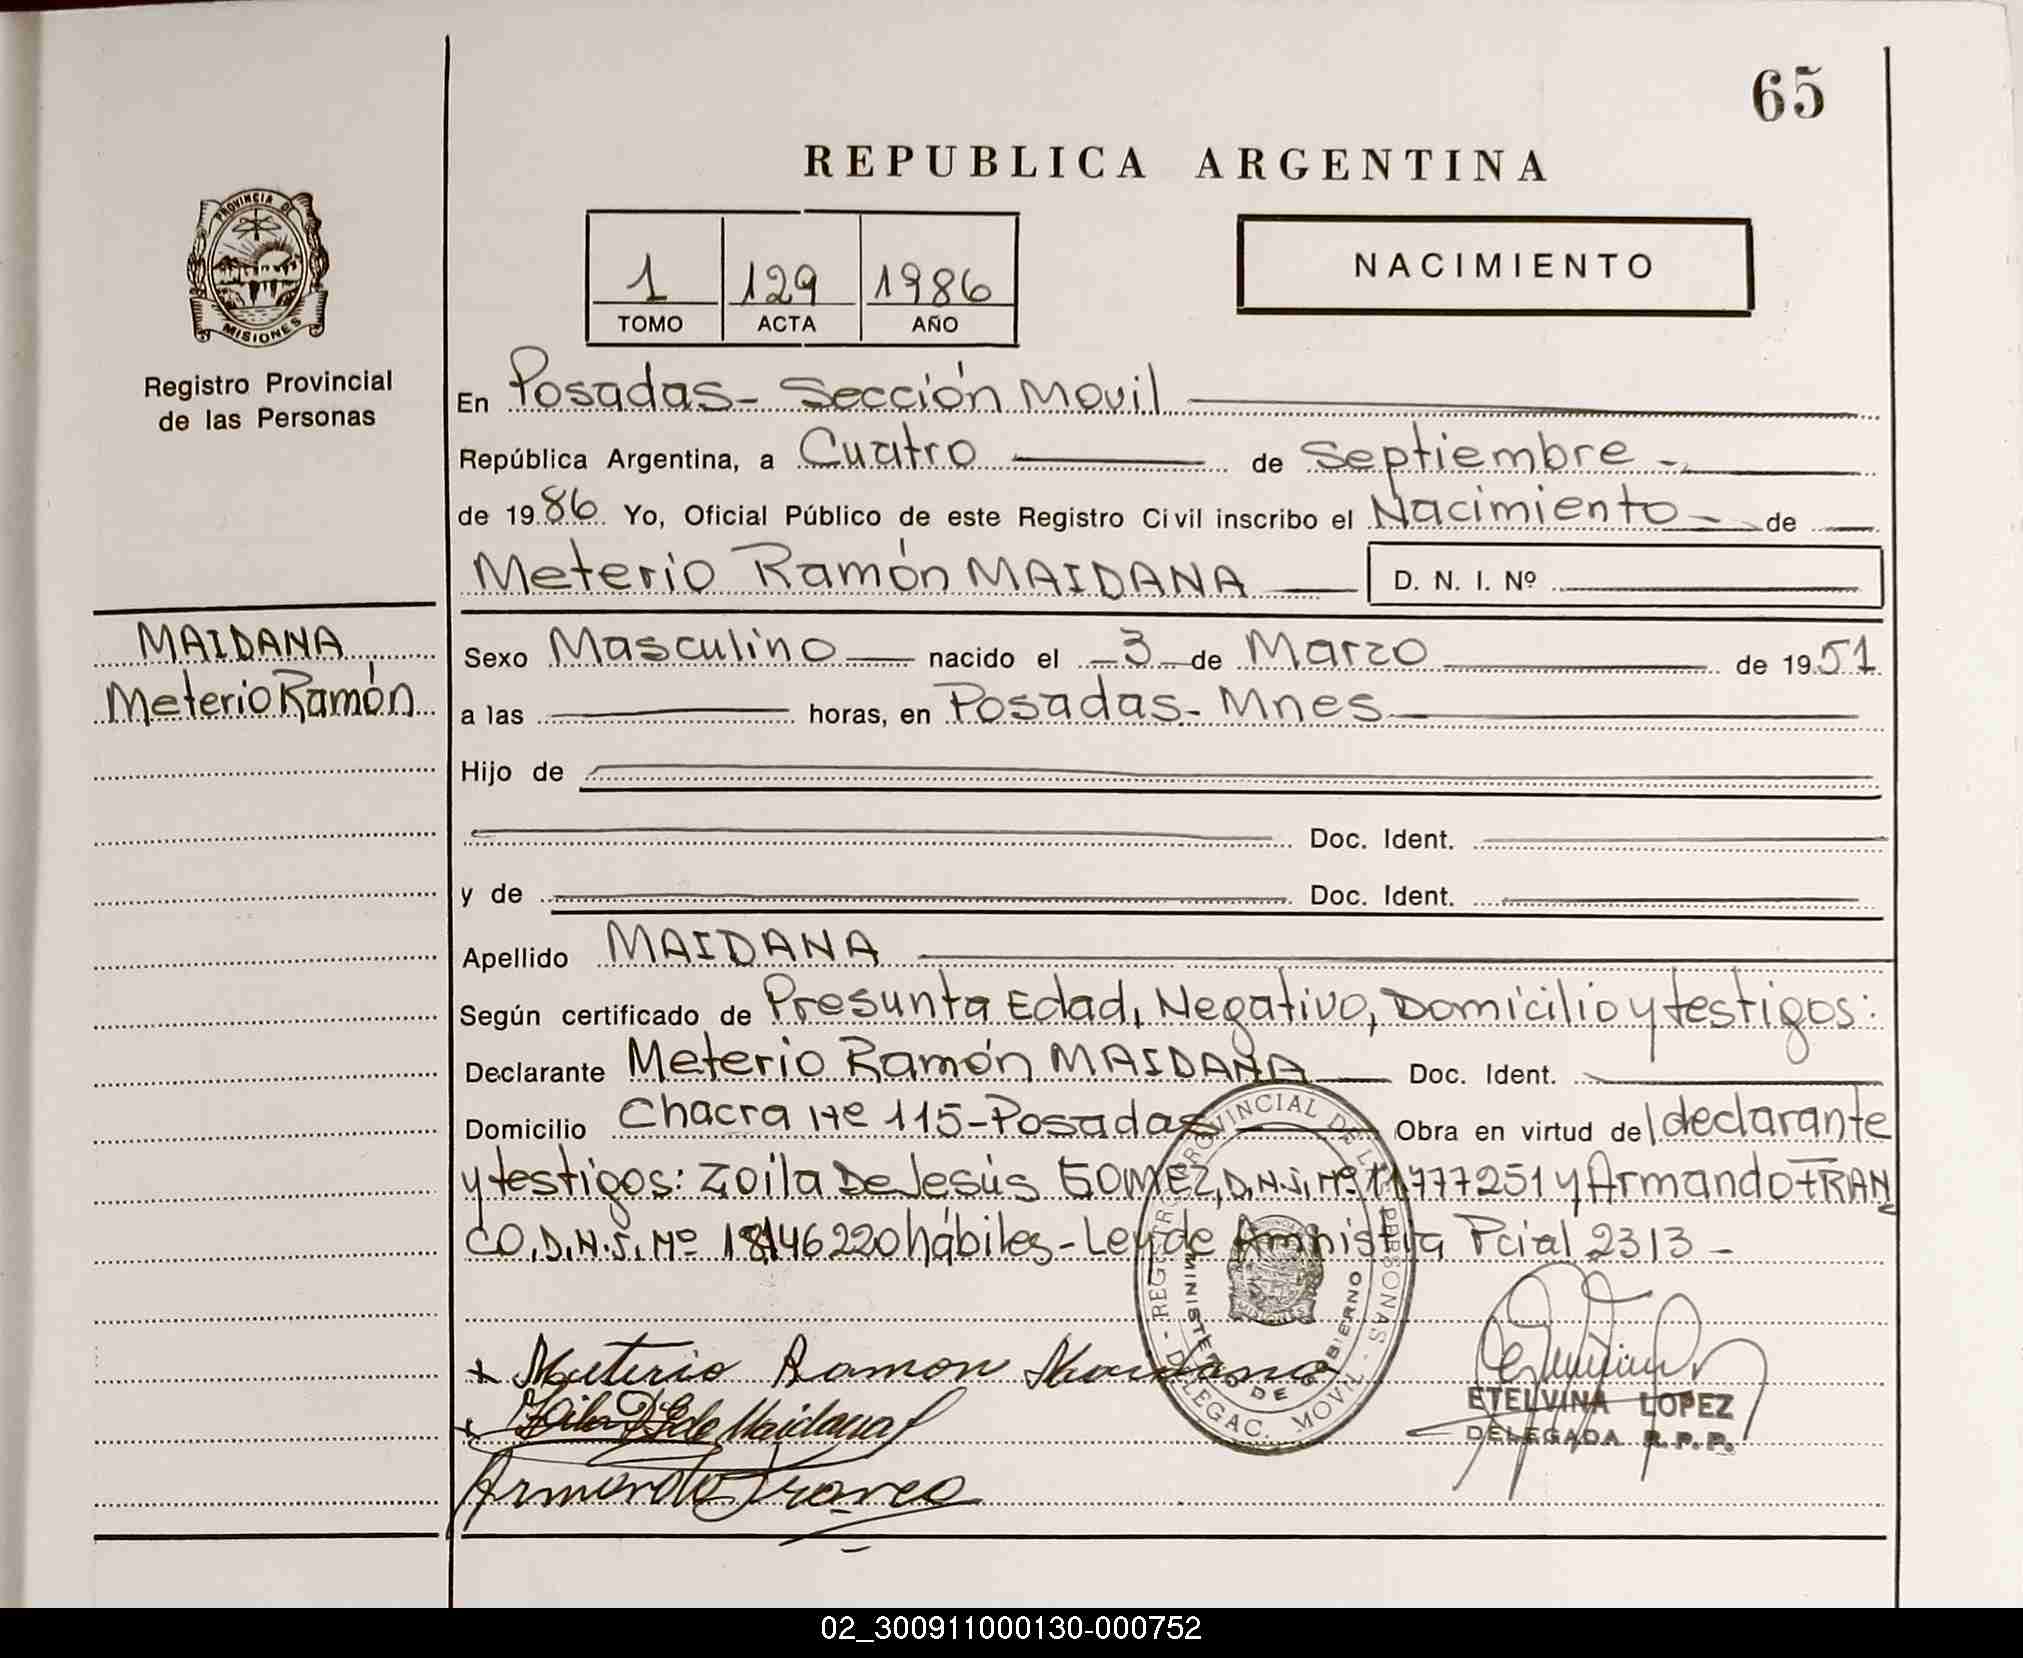 65
REPUBLICA ARGENTINA
PROVINCIA DE
MISIONES
Registro Provincial
de las Personas
1 129 1986
TOMO ACTA AÑO
NACIMIENTO
En Posadas- Sección Movil
República Argentina, a Cuatro de Septiembre -
de 1986 Yo, Oficial Público de este Registro Civil inscribo el Nacimiento - de
Meterio Ramón MAIDANA D. N. I. Nº
MAIDANA
Meterio Ramón
Sexo Masculino nacido el 3 de Marzo de 1951
a las horas, en Posadas- Mnes
Hijo de
Doc. Ident.
y de Doc. Ident.
Apellido MAIDANA
Según certificado de Presunta Edad, Negativo, Domicilio y testigos:
Declarante Meterio Ramón MAIDANA Doc. Ident.
Domicilio Chacra Nº 115-Posadas Obra en virtud del declarante
y testigos: Zoila De Jesús GOMEZ, D.N.I. Nº 11.777251 y Armando FRAN
CO, D.N.I. Nº 18146220 hábiles - Ley de Amnistia Pcial 2313 -
REGISTRO PROVINCIAL DE LAS PERSONAS - DELEGAC. MOVIL -
MINISTERIO DE GOBIERNO
MISIONES
Meterio Ramon Maidana
Zoila D Maidana
Armando Franco
ETELVINA LOPEZ
DELEGADA R.P.P.
02_300911000130-000752